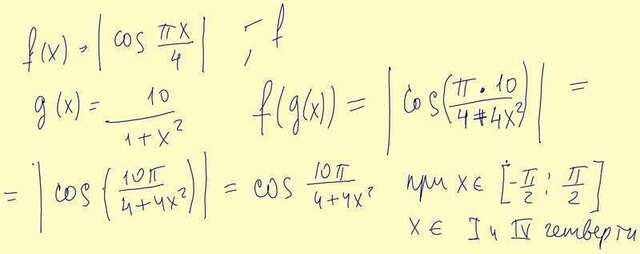 f(x) = |cos πx/4| ; f
g(x) = 10/(1+x²) f(g(x)) = |cos(π·10/(4+4x²))| =
= |cos(10π/(4+4x²))| = cos 10π/(4+4x²) при x ∈ [-π/2 ; π/2]
x ∈ I и IV четверти